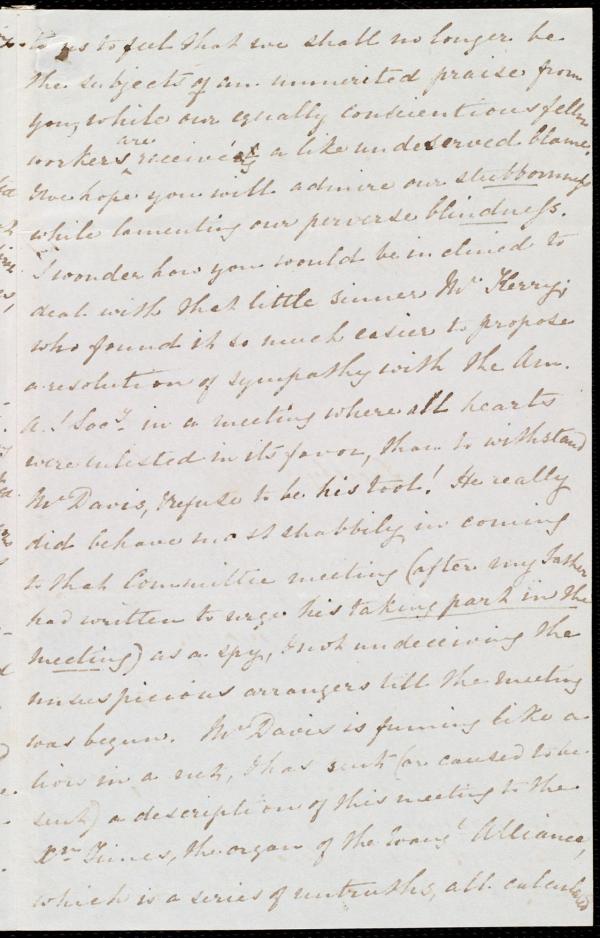 to us to feel that we shall no longer be
the subjects of an unmerited praise from
you, while our equally conscientious fellow
are
workers receive a like undeserved blame.
& we hope you will admire our stubbornness
while lamenting our perverse blindness.
I wonder how you would be inclined to
deal with that little sinner Mr. Kerry,
who found it so much easier to propose
a resolution of sympathy with the Am.
A. S. Socy. in a meeting where all hearts
were enlisted in its favor, than to withstand
Mr Davis, & refuse to be his tool! He really
did behave most shabbily in coming
to that Committee meeting (after my father
had written to urge his taking part in the
meeting) as a spy, & not undeceiving the
unsuspicious arrangers till the meeting
was begun. Mr Davis is fuming like a
lion in a net, & has sent (or caused to be
sent) a description of this meeting to the
Xn Times, the organ of the Evangl Alliance,
which is a series of untruths, all calculated